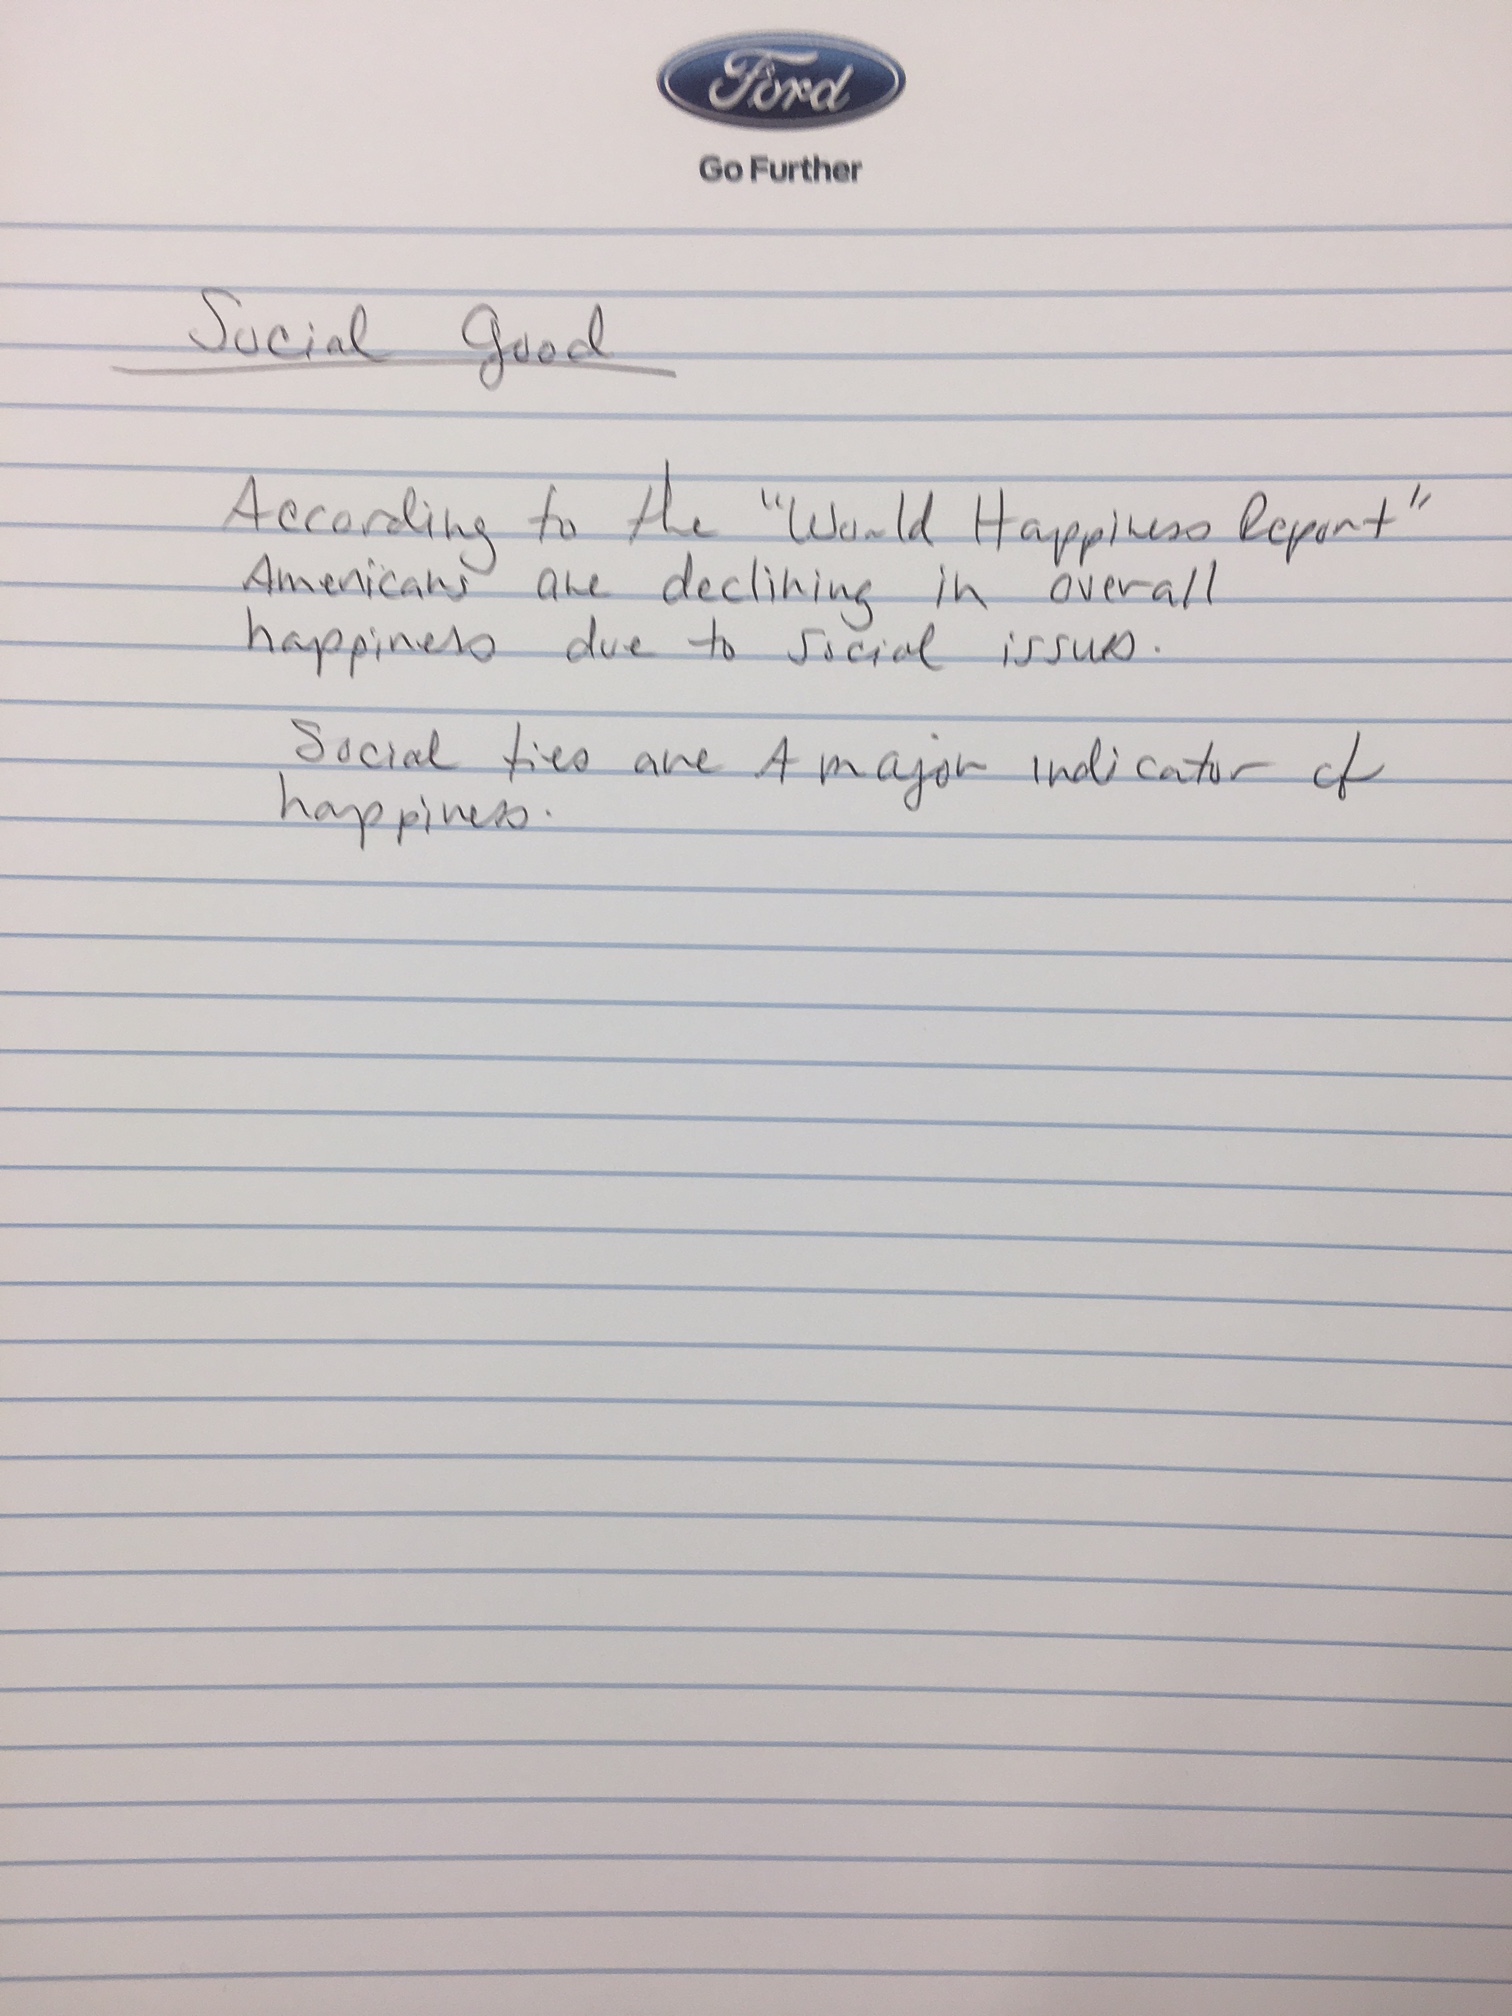 Ford
Go Further
Social Good
According to the "World Happiness Report"
Americans are declining in overall
happiness due to social issues.
Social ties are A major indicator of
happiness.